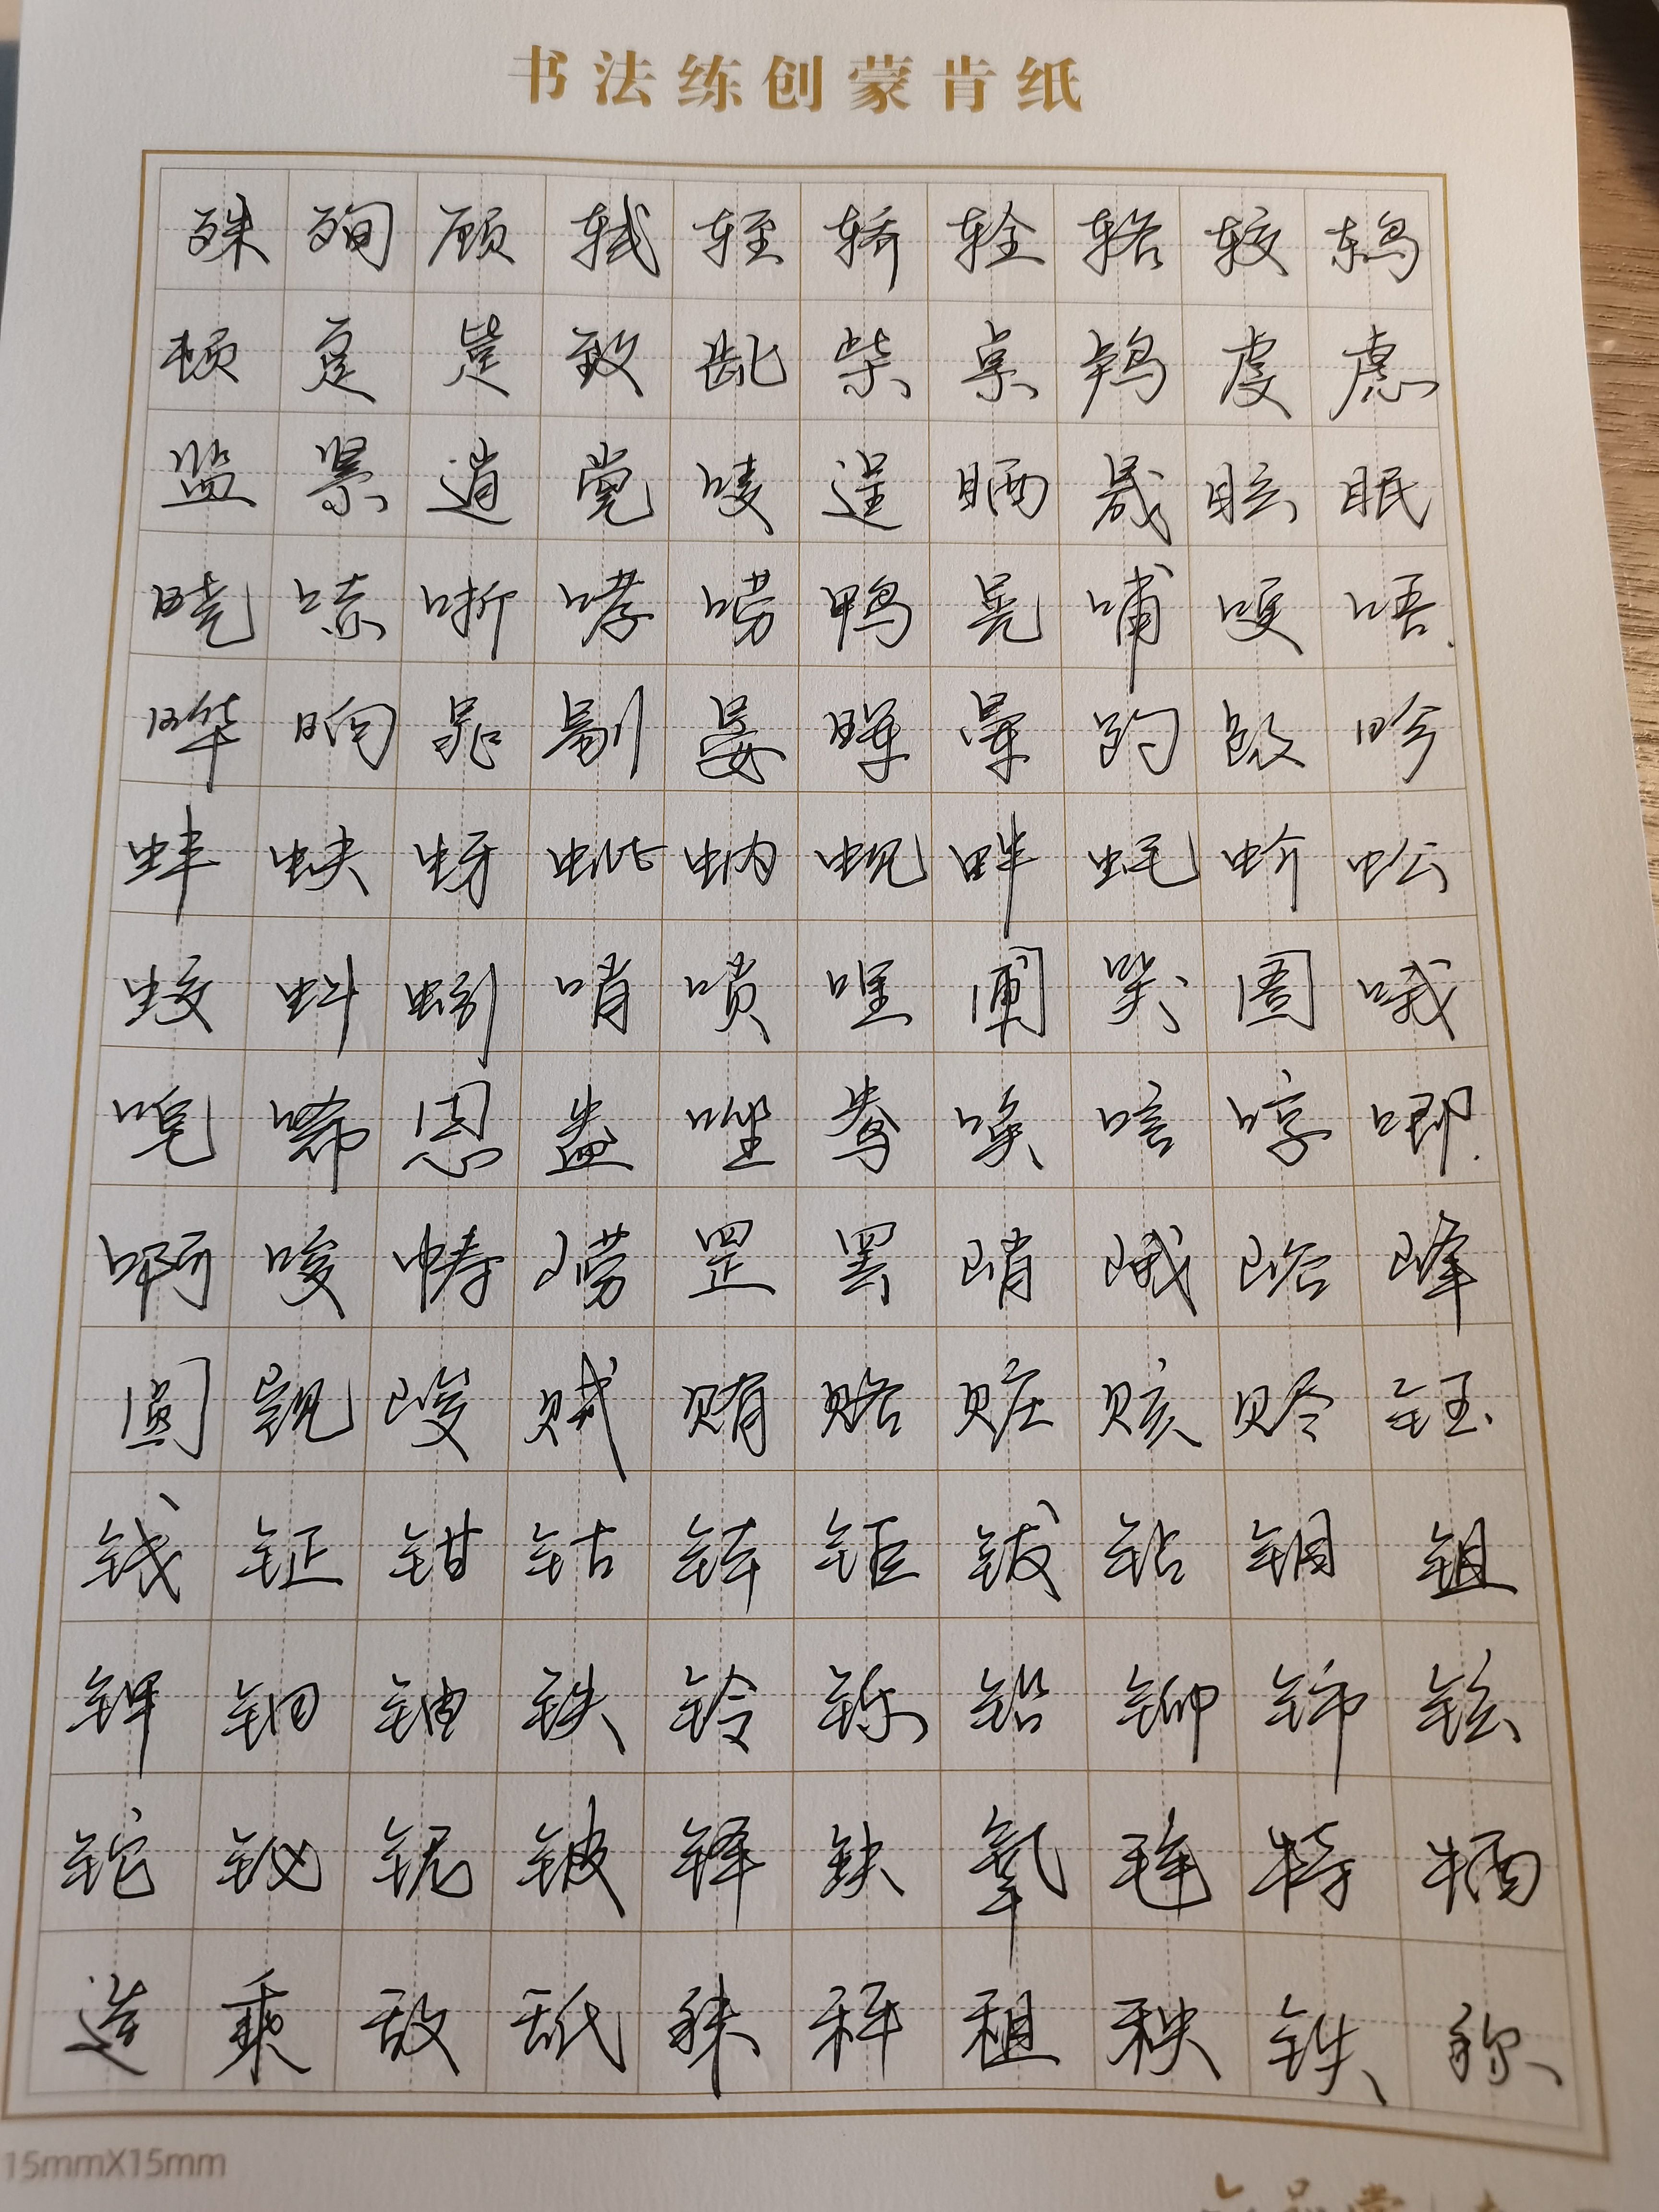 书法练创蒙肯纸
殊殉顾轼轾轿辁辂较鸫
顿趸毙致龀柴桌鸬虔虑
监紧逍党唛逞晒晟眩眠
晓哧哳哮唠鸭晃哺哽唔
晔晌晁剔晏晖晕趵趿畛
蚌蚨蚜蚍蚋蚬畔蚝蚧蚣
蚊蚪蚓哨唢哩圃哭圄哦
唣唏恩盎唑鸯唤唁哼唧
啊唆帱崂罡罢峭峨峪峰
圆觊峻贼贿赂赃赅赆钰
钱钲钳钴钵钜钹钻钼钽
钾钿铀铁铃铄铅铆铈铉
铊铋铌铍铎缺氧毪特牺
造乘敌舐秣秤租秧铁称
15mmX15mm